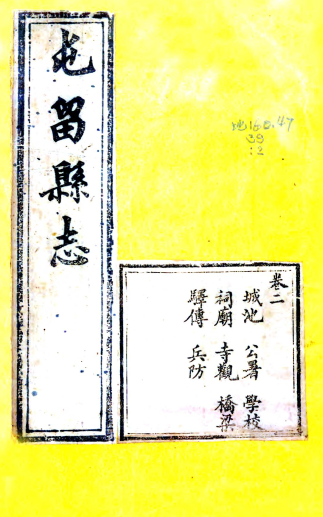 屯留縣志
地160.47
39
:2
卷二
城池 公署 學校
祠廟 寺觀 橋梁
驛傳 兵防